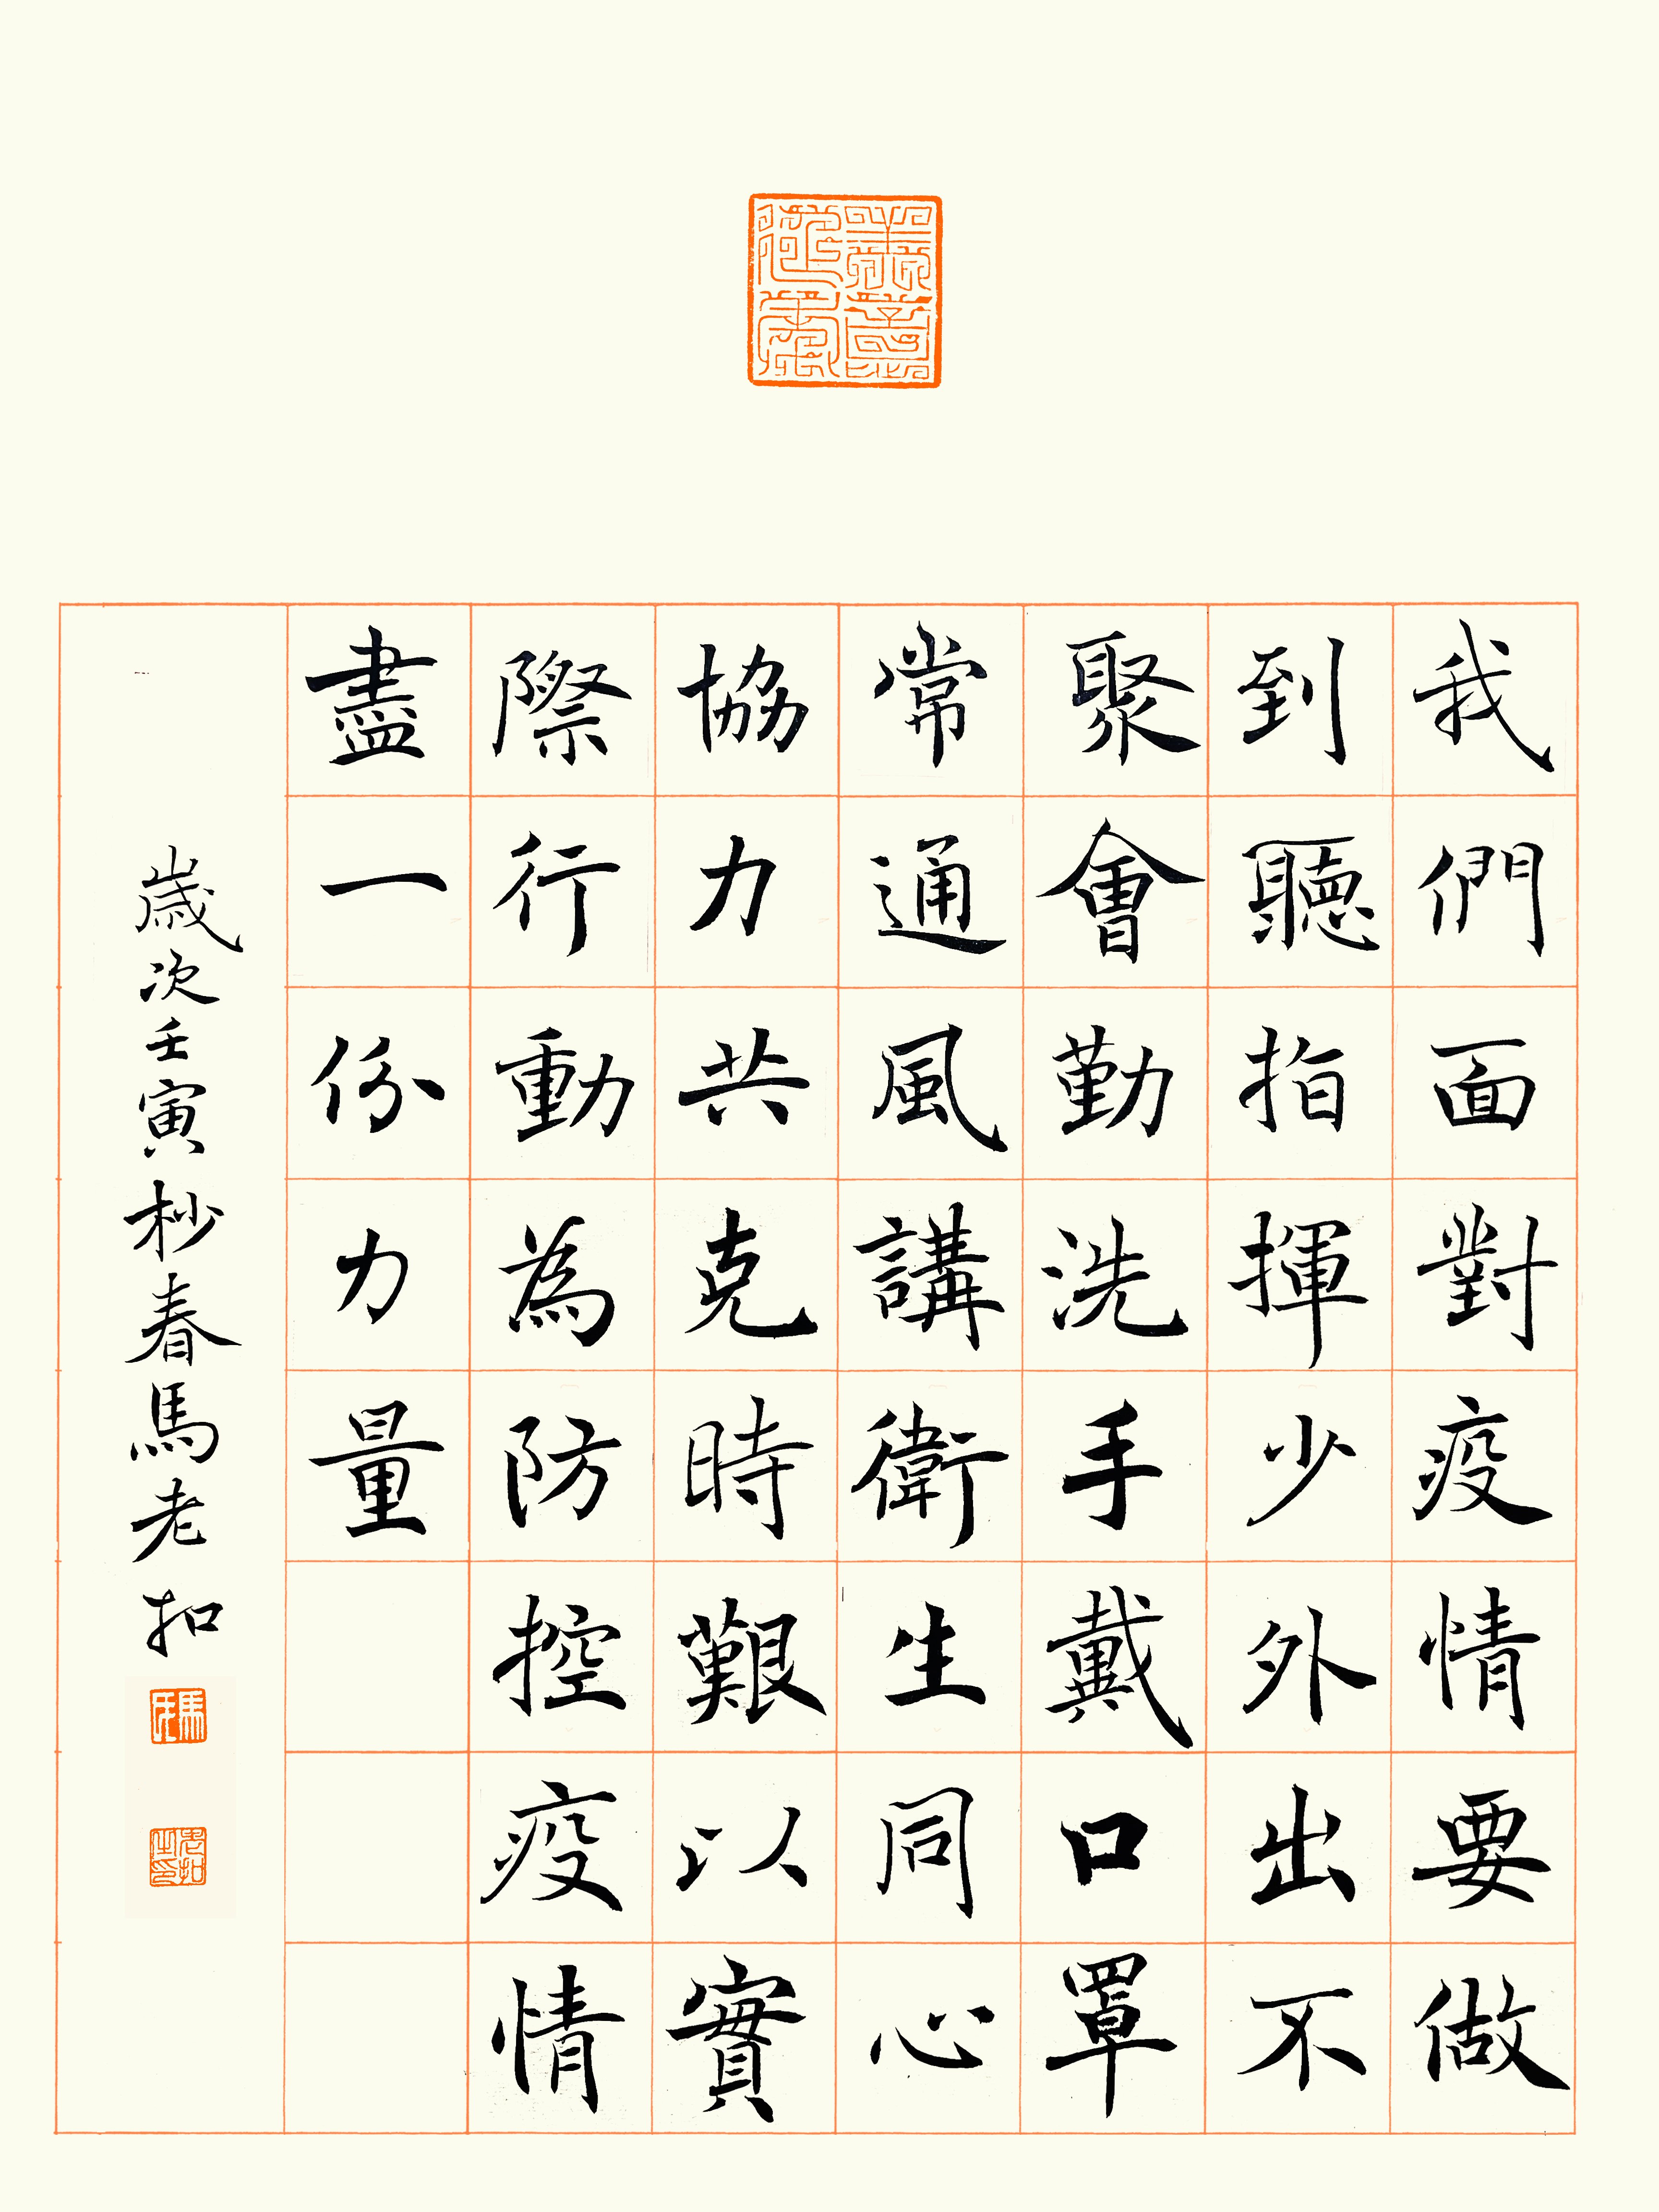 我們面對疫情要做
到聽指揮少外出不
聚會勤洗手戴口罩
常通風講衛生同心
協力共克時艱以實
際行動為防控疫情
盡一份力量
歲次壬寅杪春馬老扣
馬氏
老扣之印